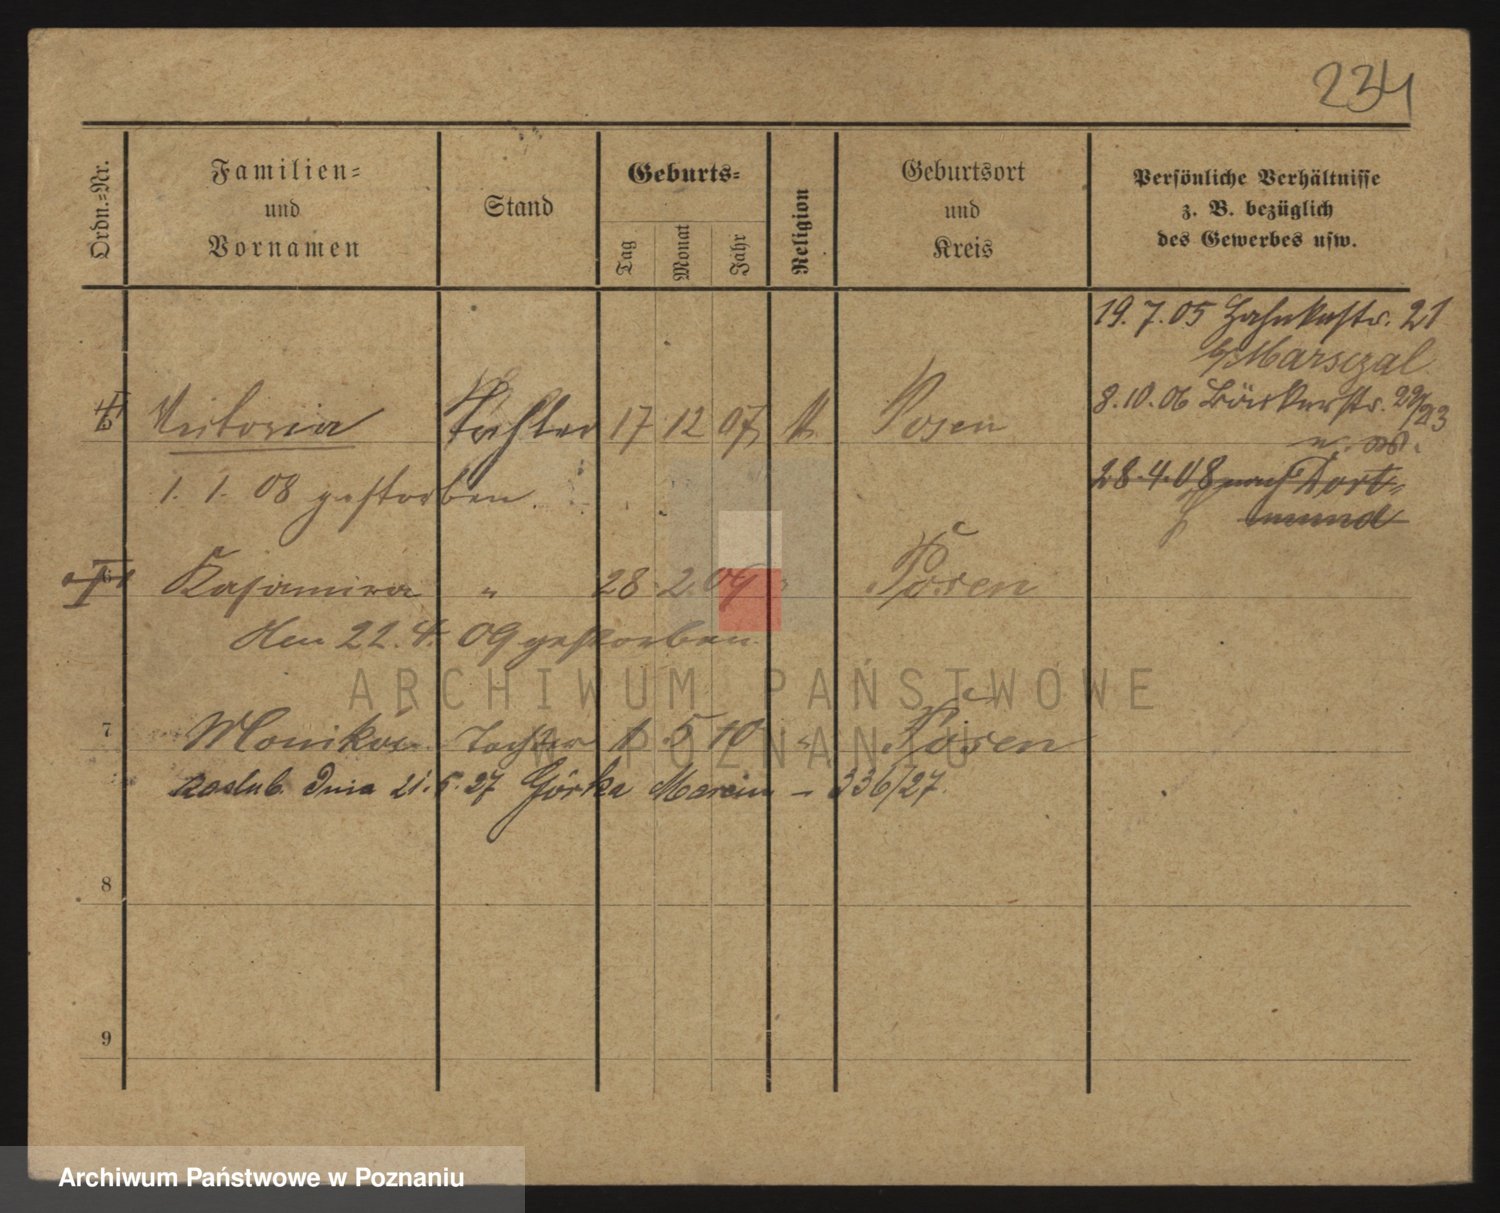 234
Ordn.-Nr.
Familien-
und
Vornamen
Stand
Geburts-
Tag
Monat
Jahr
Religion
Geburtsort
und
Kreis
Persönliche Verhältnisse
z. B. bezüglich
des Gewerbes usw.
19. 7. 05 21
Marszal
8. 10. 06 Bäckerstr. 22/23
28. 4. 08 nach Dort-
mund
Victoria Tochter 17 12 07 Posen
1. 1. 08 gestorben
6 Kasimira " 28 2. 09 " Posen
Am 22. 4. 09 gestorben
7 Monika Tochter 1 5 10 " Posen
zaślub. dnia 21. 5. 27 Górka Marcin – 336/27.
8
9
ARCHIWUM PAŃSTWOWE
W POZNANIU
Archiwum Państwowe w Poznaniu